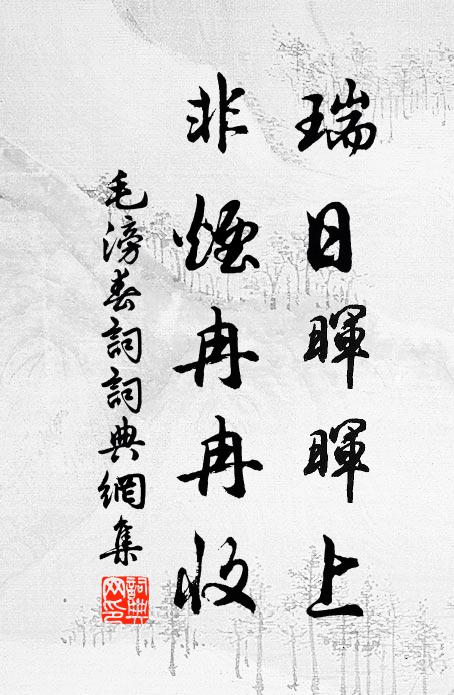 瑞日暉暉上
非煙冉冉收
毛滂春詞詞典網集
詞典網印